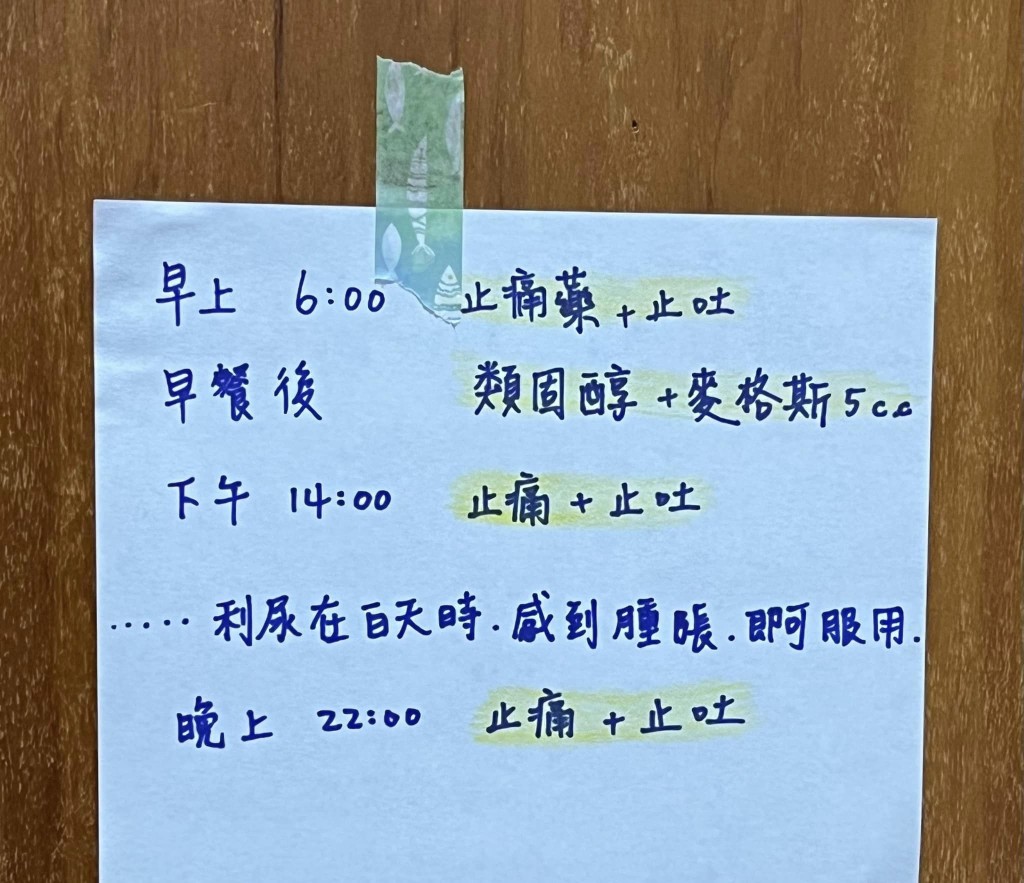 早上 6:00 止痛藥+止吐
早餐後 類固醇+麥格斯5cc
下午 14:00 止痛+止吐
.....利尿在白天時.感到腫脹.即可服用.
晚上 22:00 止痛+止吐